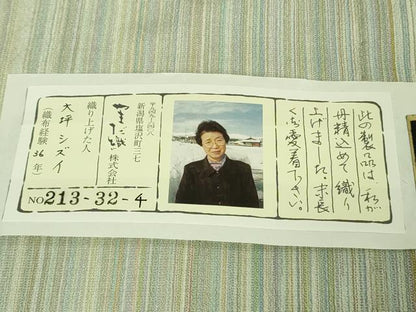 此の製品は私が
丹精込めて織り
上げました。末長
くご愛着下さい。
新潟県塩沢町
やまだ織 株式会社
織り上げた人
大坪シズイ
（織布経験36年）
NO 213-32-4